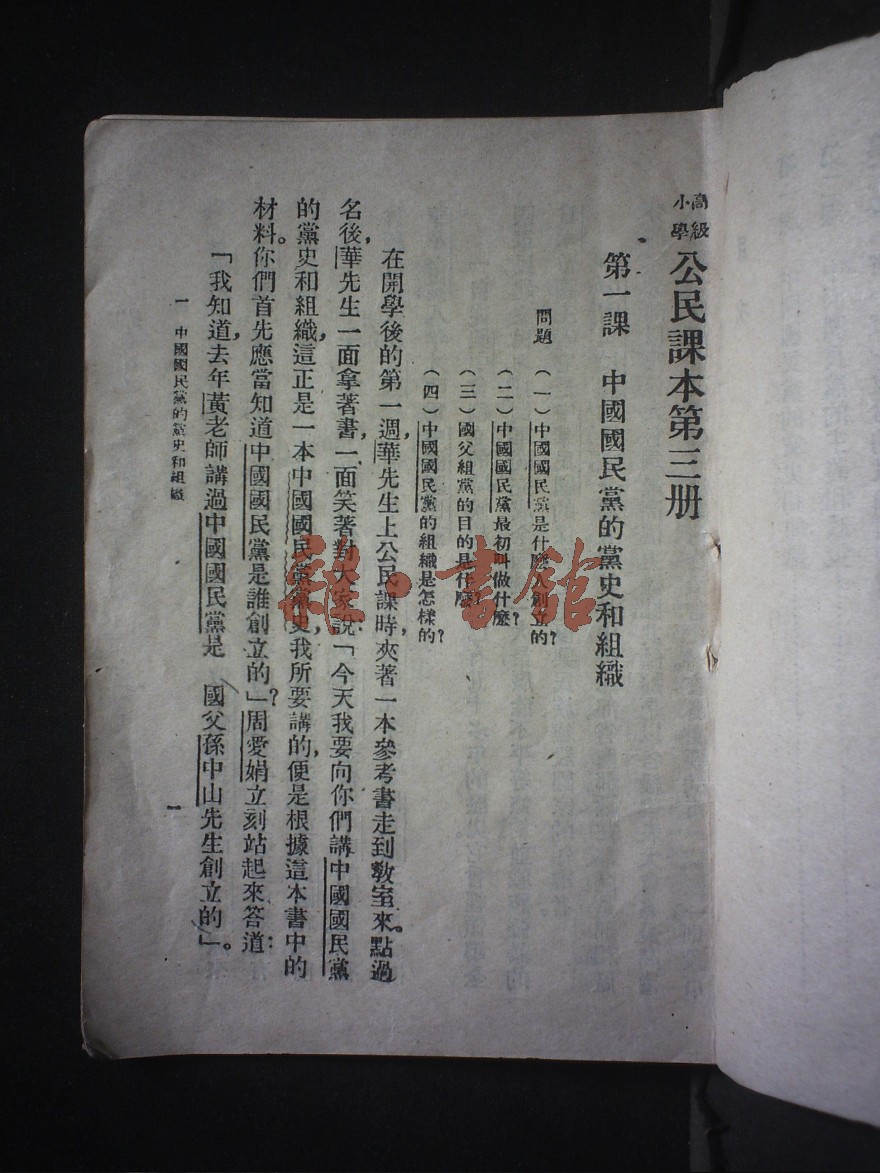 高級小學
公民課本第三册
第一課　中國國民黨的黨史和組織
問題　(一)中國國民黨是什麼人創立的？
(二)中國國民黨最初叫做什麼？
(三)國父組黨的目的是什麼？
(四)中國國民黨的組織是怎樣的？
在開學後的第一週，華先生上公民課時，夾著一本參考書走到教室來。點過
名後，華先生一面拿著書，一面笑著對大家說：「今天我要向你們講中國國民黨
的黨史和組織，這正是一本中國國民黨黨史，我所要講的，便是根據這本書中的
材料。你們首先應當知道中國國民黨是誰創立的」？周愛娟立刻站起來答道：
「我知道，去年黃老師講過中國國民黨是　國父孫中山先生創立的」。
一　中國國民黨的黨史和組織
一
書館